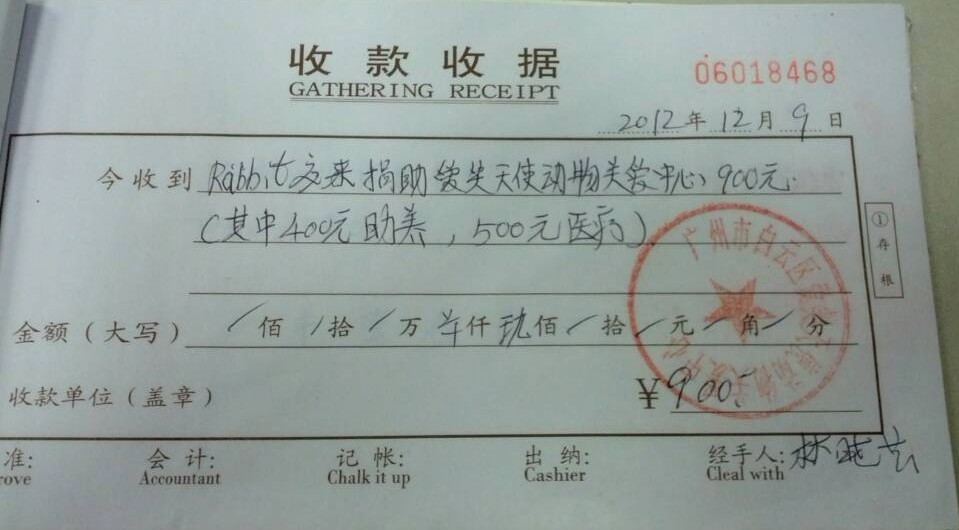 收款收据
GATHERING RECEIPT
06018468
2012年12月9日
今收到 Rabbit 来捐助 天使动物关爱中心 900元.
(其中400元助养,500元医疗).
①存根
金额(大写) / 佰 / 拾 / 万 / 仟 玖佰 / 拾 / 元 / 角 / 分
收款单位(盖章) ¥900
广州市白云区
准: 会计: 记帐: 出纳: 经手人: 林
rove Accountant Chalk it up Cashier Cleal with